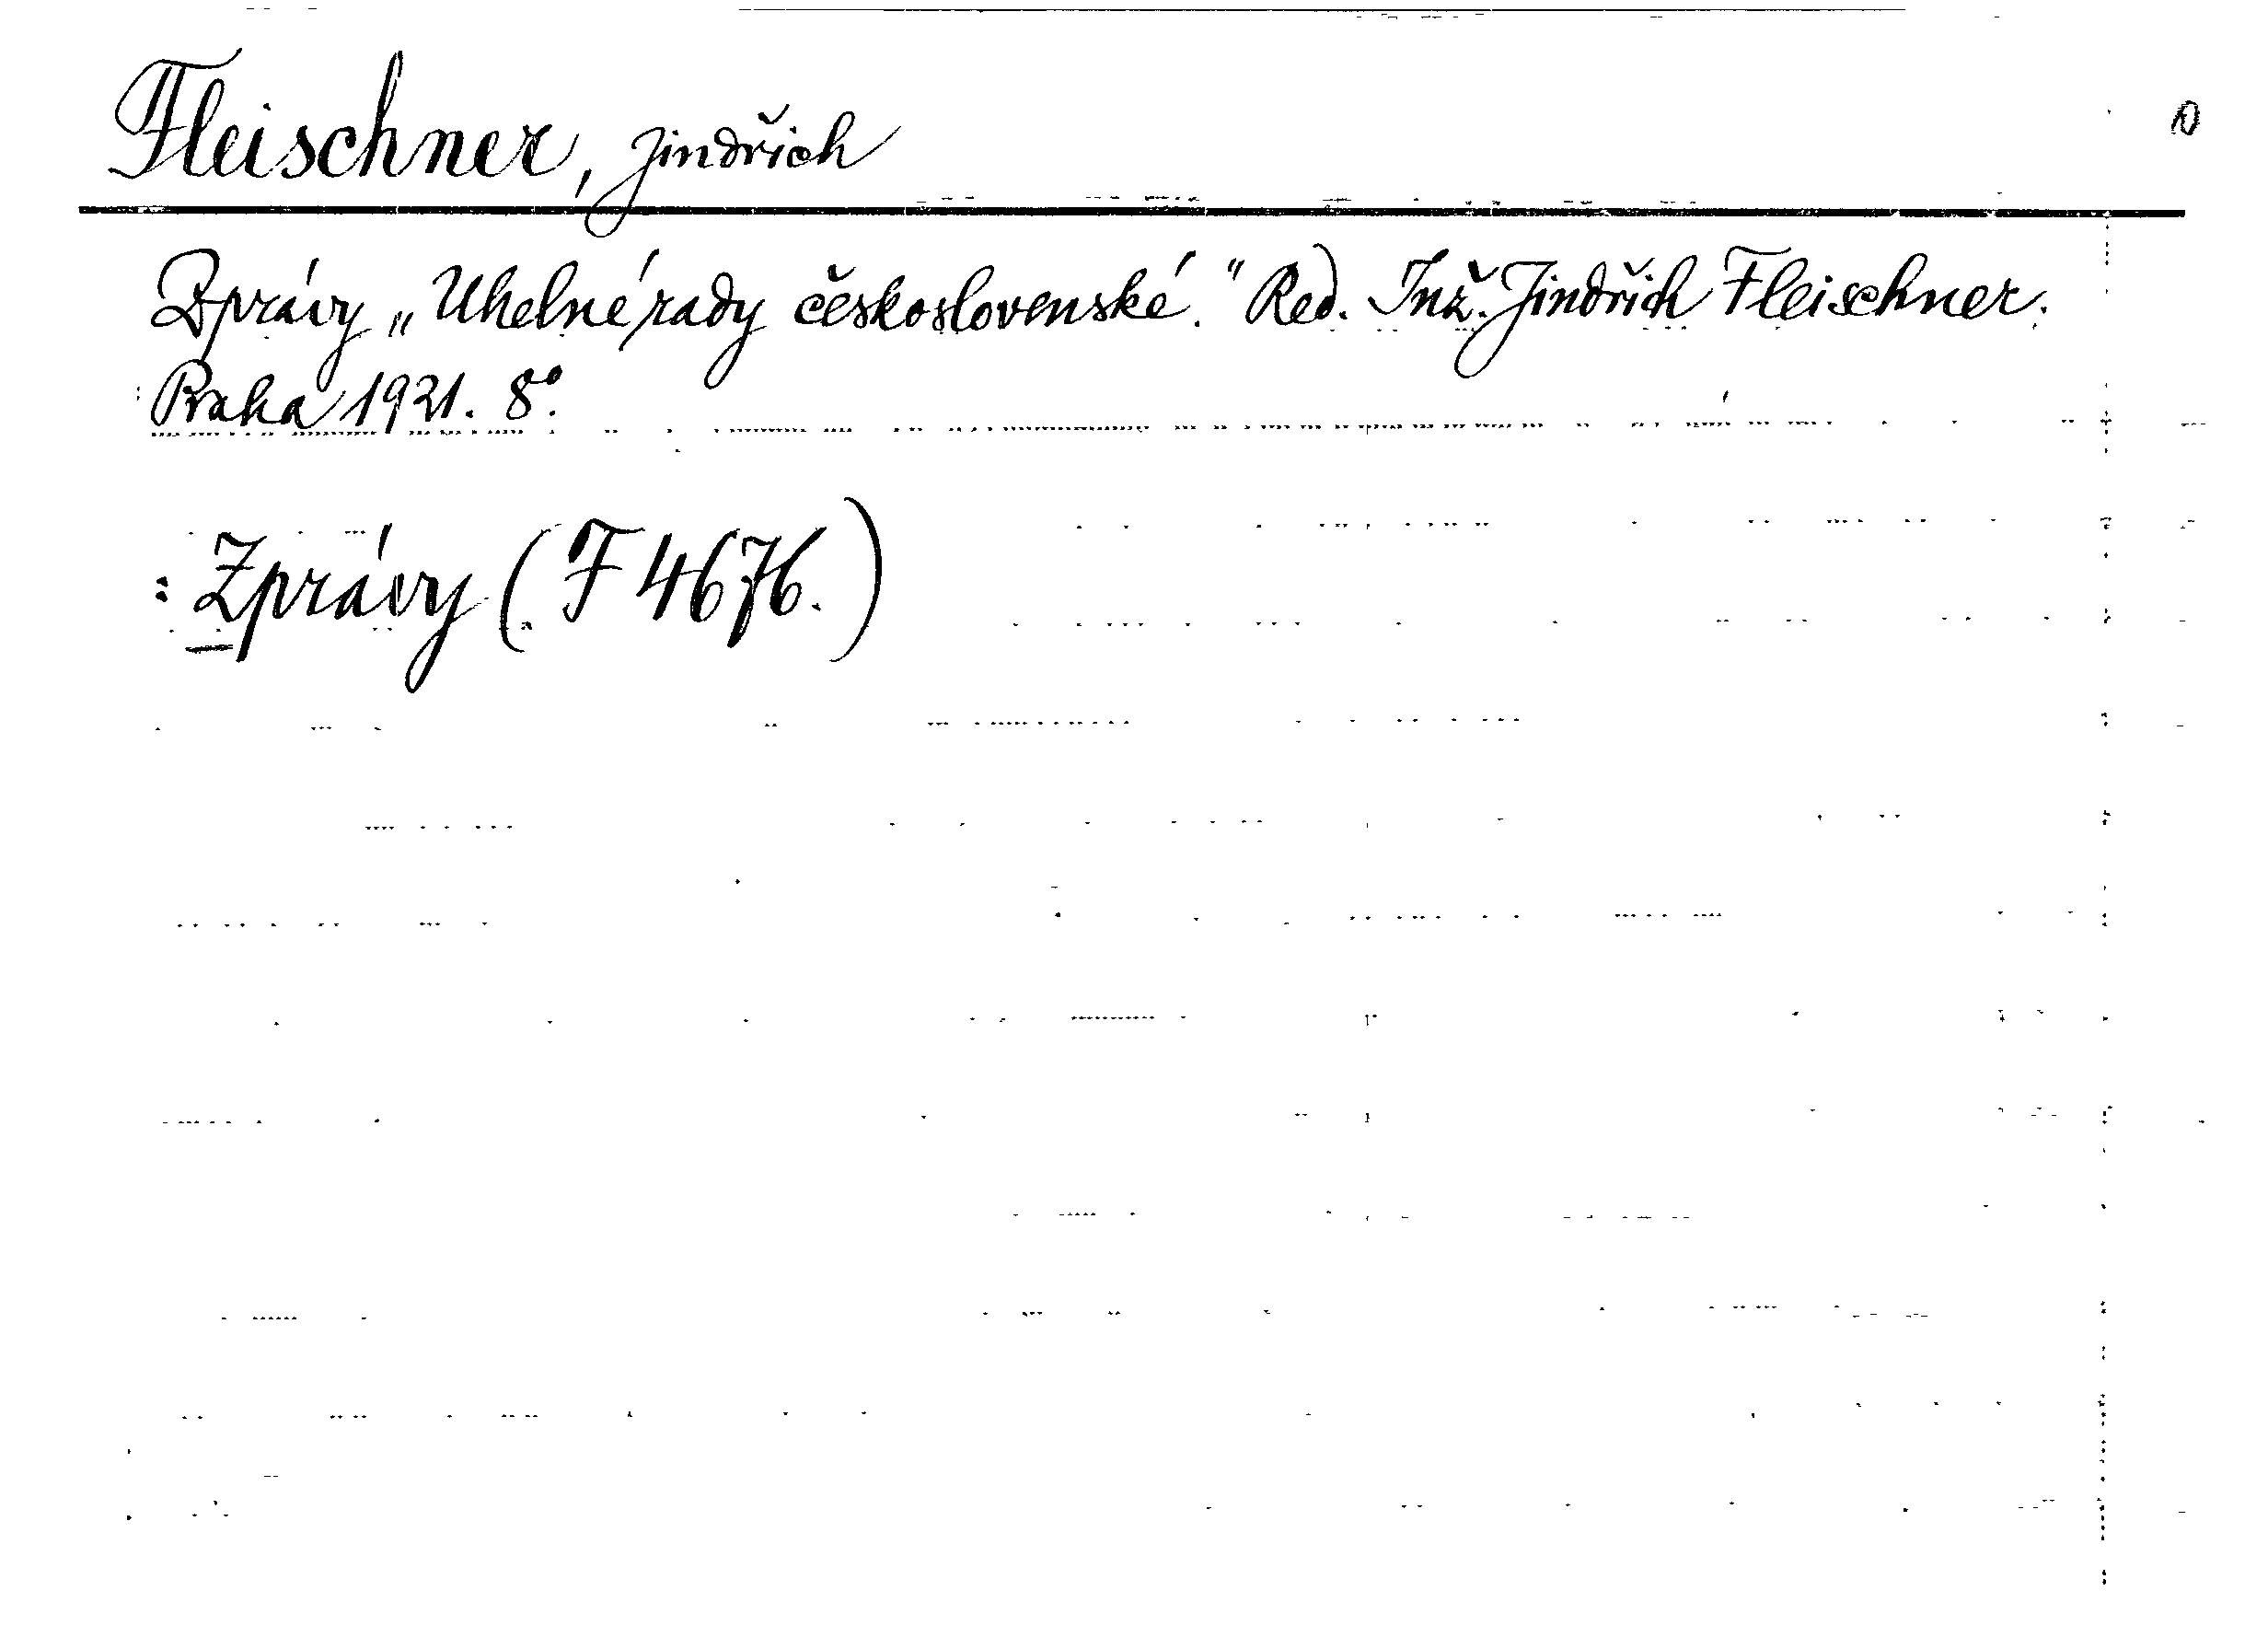 Fleischner, Jindřich
Zprávy „Uhelné rady československé." Red. Inž. Jindřich Fleischner.
Praha 1921. 8°.
: Zprávy (F 4676.)